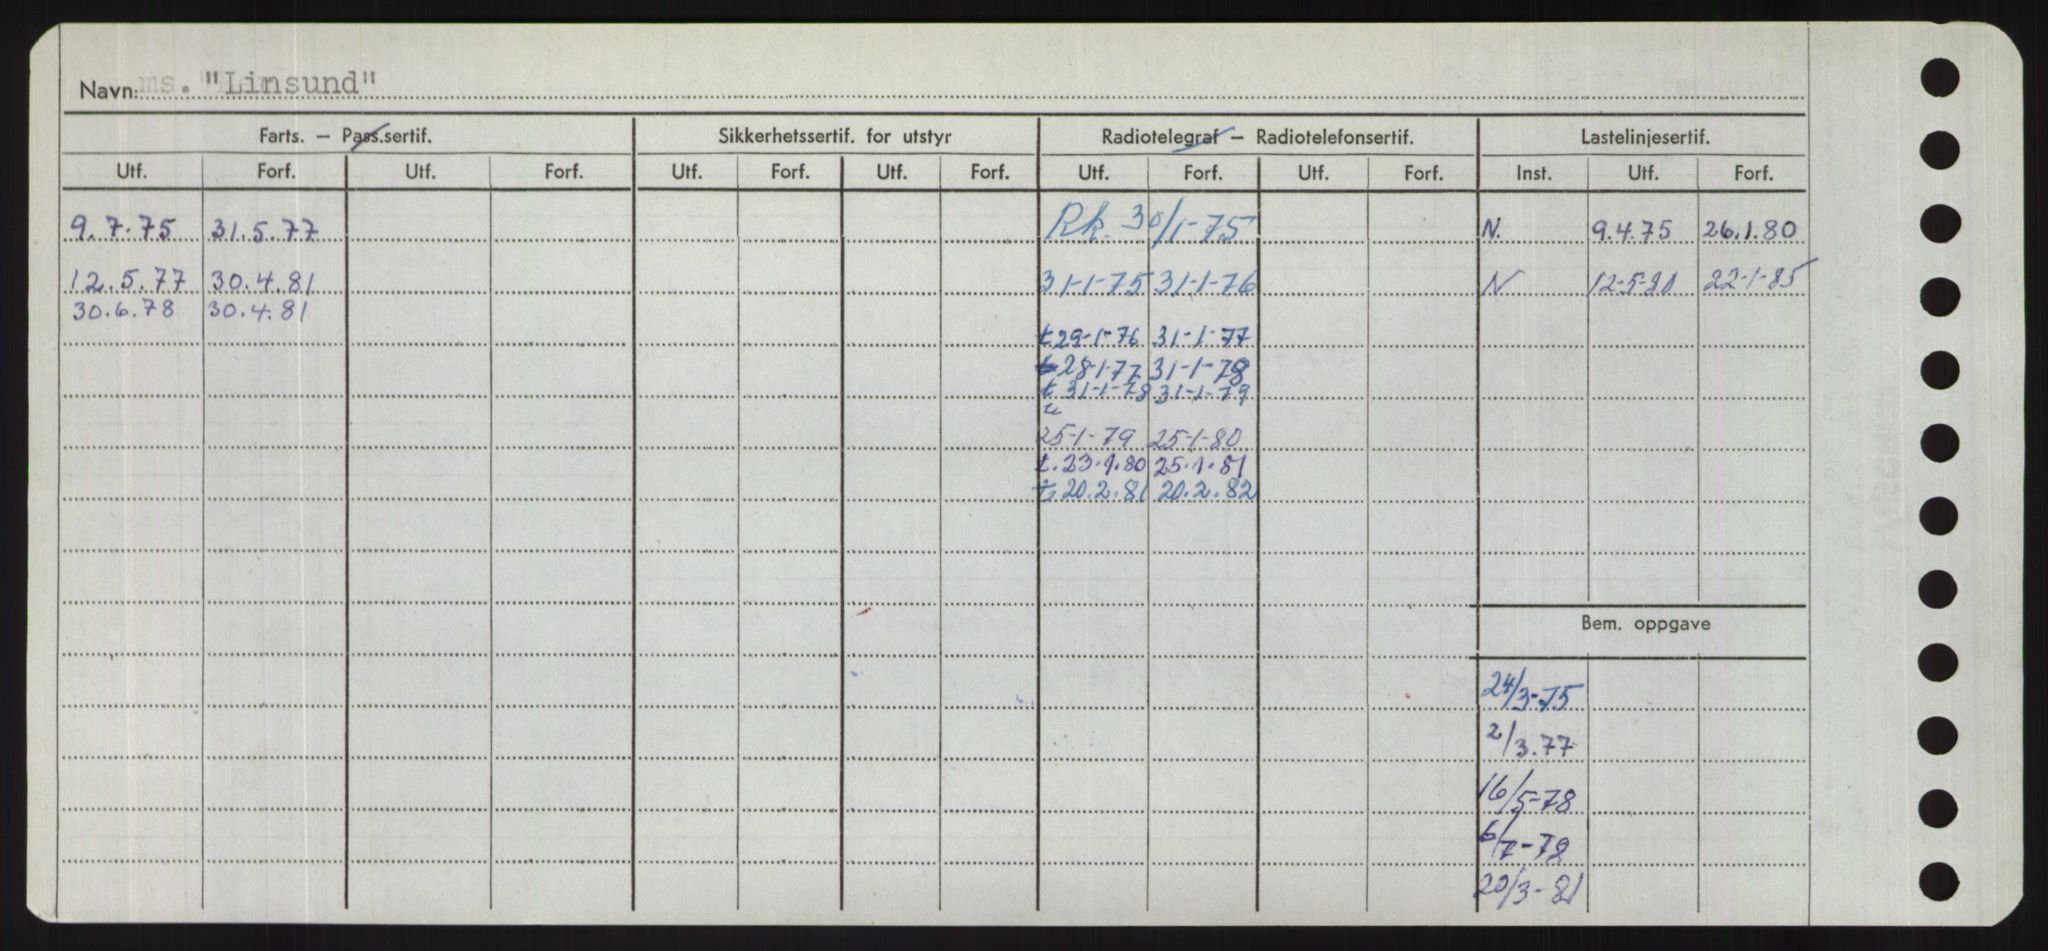 Navn: ms. "Linsund"
Farts. — Pass.sertif. Sikkerhetssertif. for utstyr Radiotelegraf — Radiotelefonsertif. Lastelinjesertif.
Utf. Forf. Utf. Forf. Utf. Forf. Utf. Forf. Utf. Forf. Utf. Forf. Inst. Utf. Forf.
9.7.75 31.5.77 Rk. 30/1-75 N. 9.4.75 26.1.80
12.5.77 30.4.81 31-1-75 31-1-76 N 12-5-80 22-1-85
30.6.78 30.4.81
t 29-1-76 31-1-77
t 28-1-77 31-1-78
t 31-1-78 31-1-79
25-1-79 25-1-80
t. 23.1.80 25.1.81
t. 20.2.81 20.2.82
Bem. oppgave
24/3-75
2/3.77
16/5-78
6/7-78
20/3-81